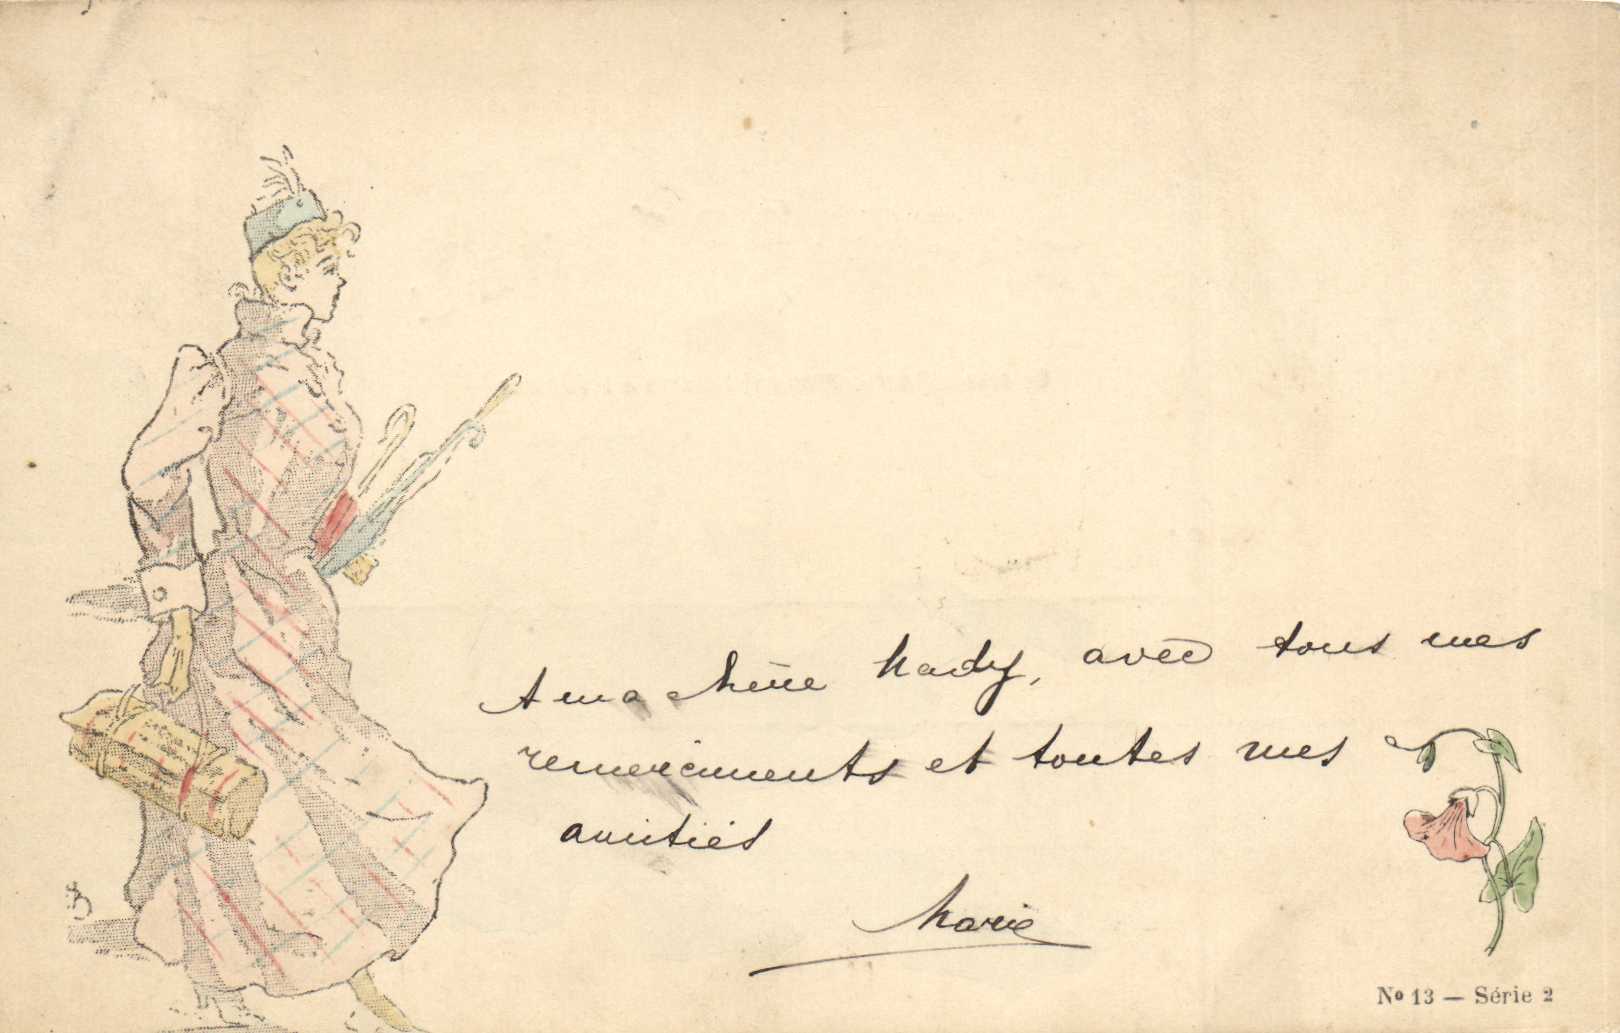 A ma chère Mady, avec tous mes
remerciments et toutes mes
amitiés
Marie
No 13 — Série 2